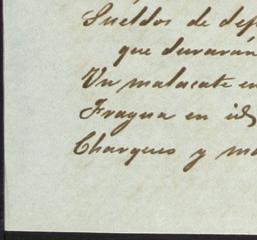 Sueldos de dep
que durarán
Un malacate en
Fragua en id
Charqueo y ma